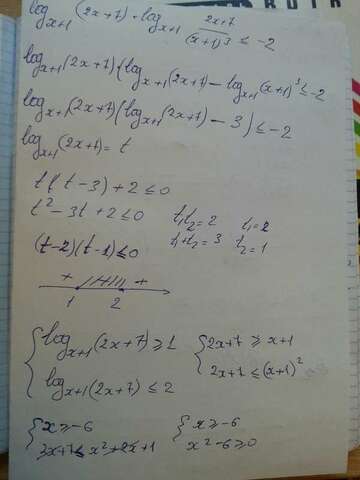 log_{x+1} (2x+7) · log_{x+1} \frac{2x+7}{(x+1)^3} ≤ -2
log_{x+1} (2x+7) (log_{x+1} (2x+7) - log_{x+1} (x+1)^3 ≤ -2
log_{x+1} (2x+7) (log_{x+1} (2x+7) - 3) ≤ -2
log_{x+1} (2x+7) = t
t(t-3) + 2 ≤ 0
t^2 - 3t + 2 ≤ 0 t_1 t_2 = 2 t_1 = 2
(t-2)(t-1) ≤ 0 t_1 + t_2 = 3 t_2 = 1
+ +
1 2
{ log_{x+1} (2x+7) ≥ 1 { 2x+7 ≥ x+1
log_{x+1} (2x+7) ≤ 2 2x+7 ≤ (x+1)^2
{ x ≥ -6 { x ≥ -6
2x+7 ≤ x^2 + 2x + 1 x^2 - 6 ≥ 0